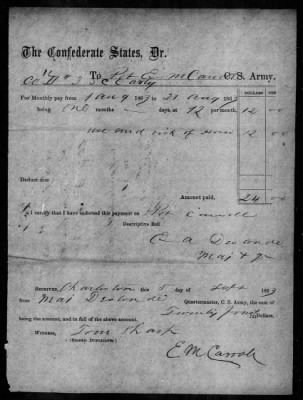 The Confederate States, Dr.
To Pvt E. M Carroll C. S. Army,
DOLLARS CTS
For Monthly pay from 1 Aug 1863 to 31 Aug 1863
being one months days at 12 per month, 12 00
12 00
Deduct due
Amount paid, 24 00
I certify that I have endorsed this payment on Pvt Carroll
Descriptive Roll
C A
Maj & Qr
Received, Charleston this 5 day of Sept 1863
from Maj Quartermaster, C. S. Army, the sum of
Twenty Four Dollars,
being the amount, and in full of the above account.
Witness, Tom Sharp
(SIGNED DUPLICATES.)
E M Carroll